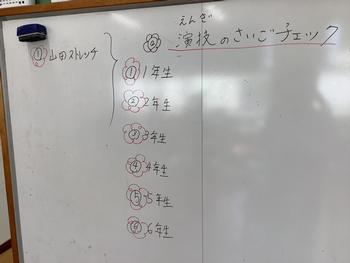 えんぎ
◎ 演技のさいごチェック
① 山田ストレッチ
① 1年生
② 2年生
③ 3年生
④ 4年生
⑤ 5年生
⑥ 6年生